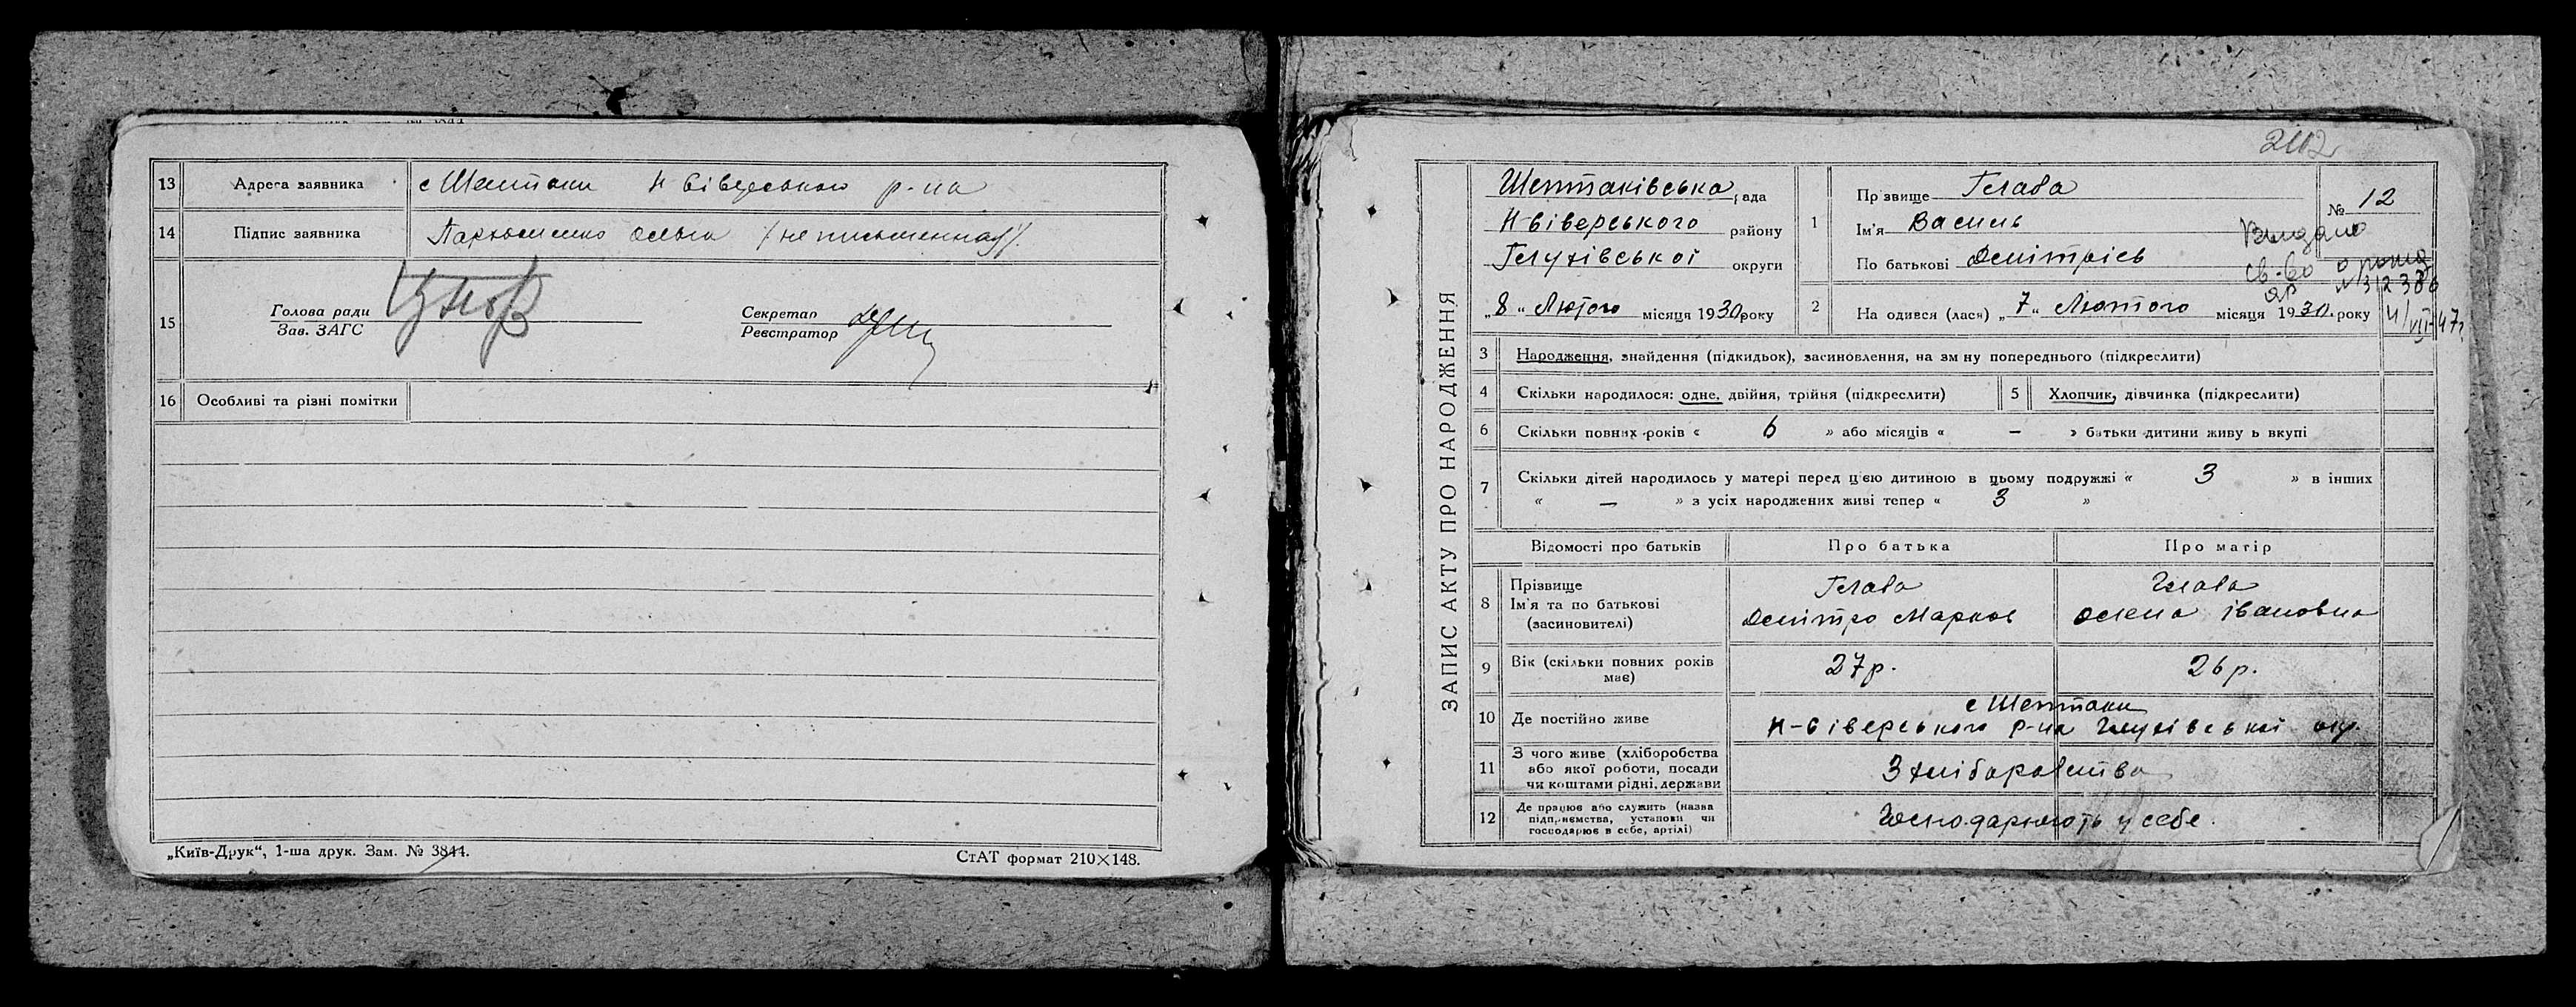 13 Адреса заявника с Шептаки Н Сіверського р-на
14 Підпис заявника Пархоменко Ольга /не письменная/.
15 Голова ради
Зав. ЗАГС
Секретар
Реєстратор
16 Особливі та різні помітки
„Київ-Друк“, 1-ша друк. Зам. № 3844.
СтАТ формат 210×148.
2112
ЗАПИС АКТУ ПРО НАРОДЖЕННЯ
Шептаківська рада
Н-Сіверського району
Глухівської округи
„8“ Лютого місяця 1930 року
1 Прізвище Глава
Ім'я Василь
По батькові Дмітрієв
№ 12
Выдано
св-во о рожд
ЯР № 312386
4/VII-47г
2 На одився (лася) „7“ Лютого місяця 1930. року
3 Народження, знайдення (підкидьок), засиновлення, на зміну попереднього (підкреслити)
4 Скільки народилося: одне, двійня, трійня (підкреслити)
5 Хлопчик, дівчинка (підкреслити)
6 Скільки повних років « 6 » або місяців « – » батьки дитини живуть вкупі
7 Скільки дітей народилось у матері перед цією дитиною в цьому подружжі « 3 » в інших
« – » з усіх народжених живі тепер « 3 »
Відомості про батьків Про батька Про матір
8 Прізвище
Ім'я та по батькові
(засиновителі)
Глава
Дмітро Марков
Глава
Олена Івановна
9 Вік (скільки повних років
має)
27р. 26р.
10 Де постійно живе
с Шептаки
Н-Сіверського р-на Глухівської окр.
11 З чого живе (хліборобства
або якої роботи, посади
чи коштами рідні, держави
З хліборобства
12 Де працює або служить (назва
підприємства, установи чи
господарює в себе, артілі)
Господарюють у себе.